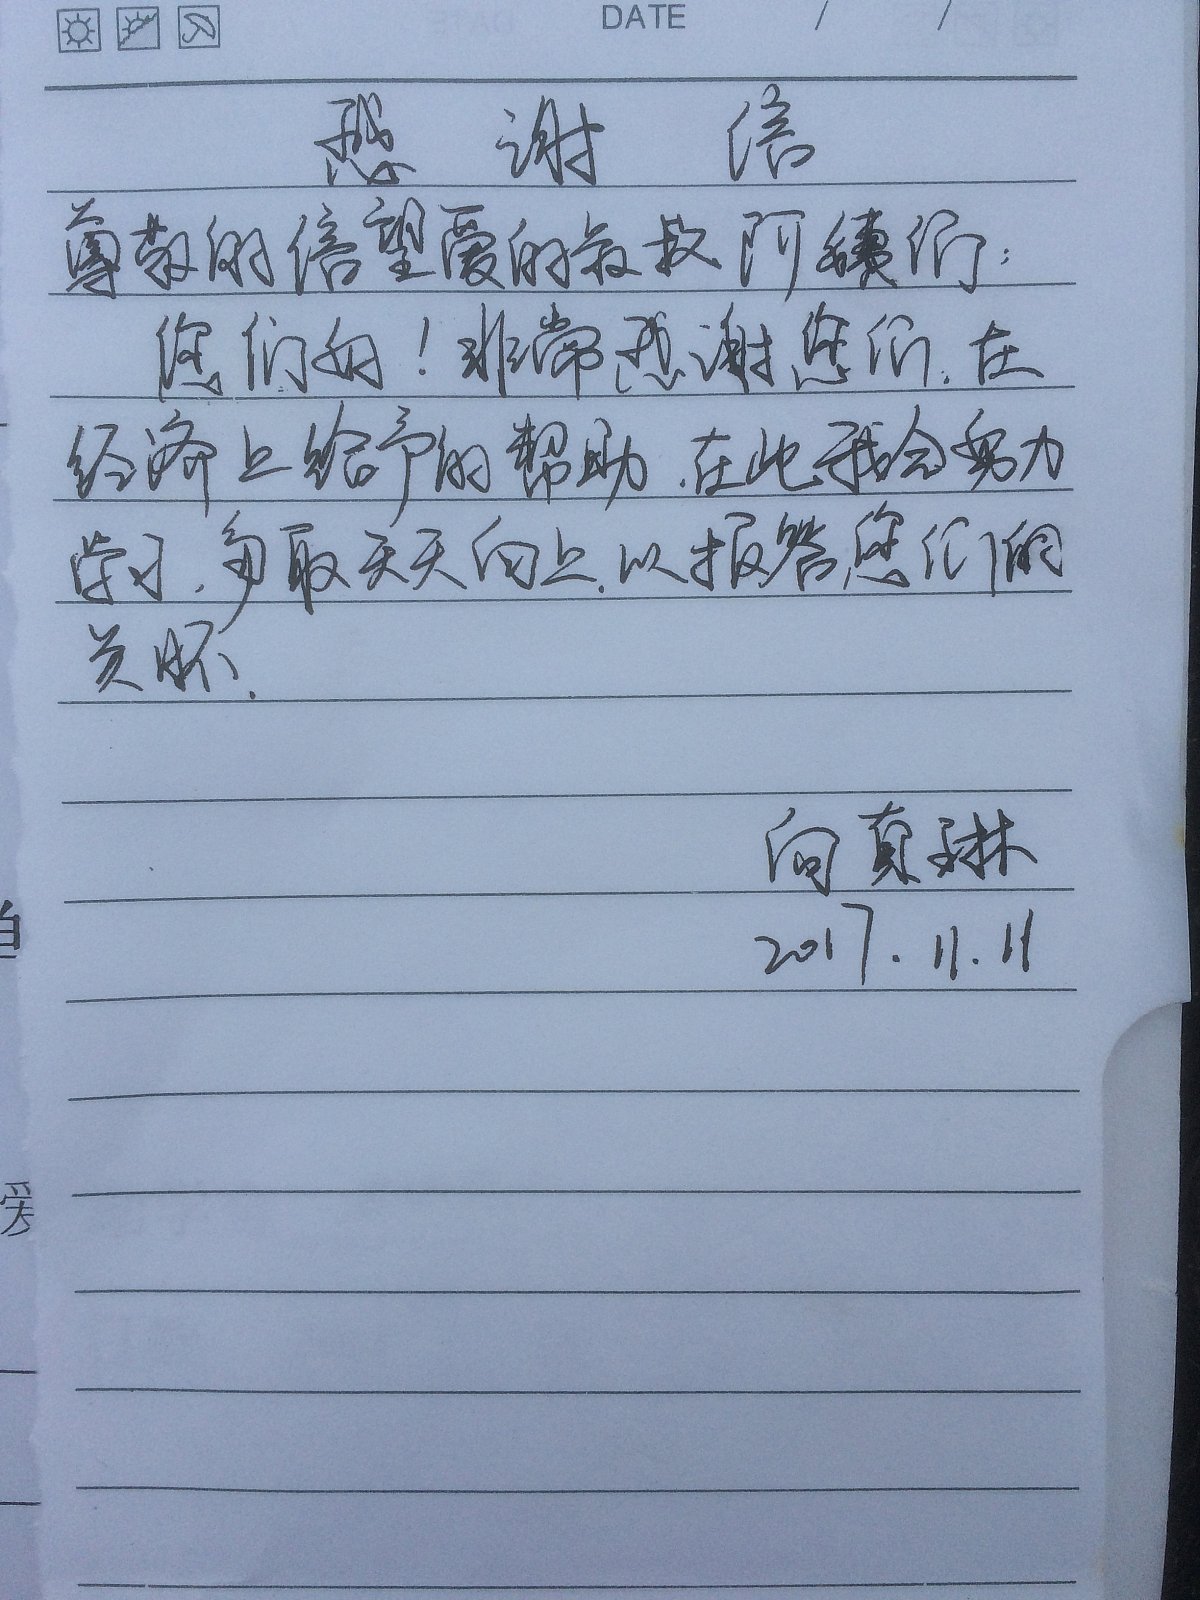 DATE / /
感谢信
尊敬的信望爱的叔叔阿姨们:
您们好!非常感谢您们.在
经济上给予的帮助.在此我会努力
学习.争取天天向上.以报答您们的
关怀.
向真琳
2017.11.11
爱